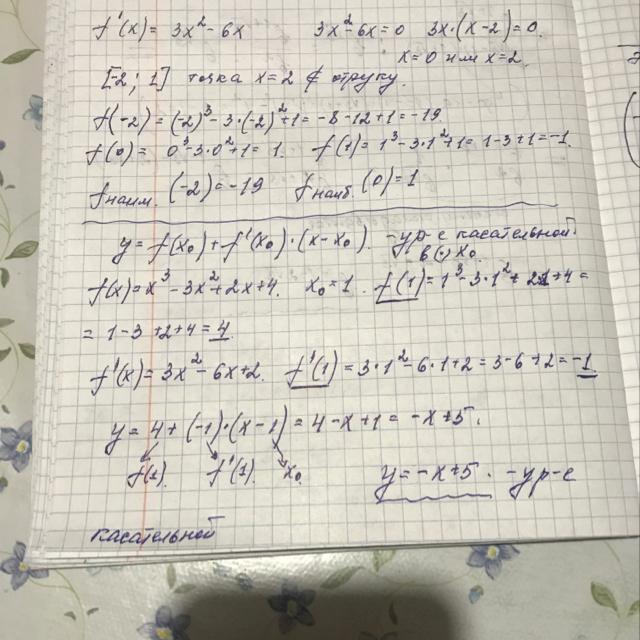 f'(x) = 3x² - 6x    3x² - 6x = 0    3x·(x-2) = 0.
x = 0 или x = 2.
[-2; 1] точка x = 2 ∉ отрезку.
f(-2) = (-2)³ - 3·(-2)² + 1 = -8 - 12 + 1 = -19
f(0) = 0³ - 3·0² + 1 = 1.    f(1) = 1³ - 3·1² + 1 = 1 - 3 + 1 = -1.
f наим. (-2) = -19    f наиб. (0) = 1
y = f(x₀) + f'(x₀)·(x - x₀). - ур-е касательной
в (·) x₀
f(x) = x³ - 3x² + 2x + 4.    x₀ = 1.    f(1) = 1³ - 3·1² + 2·1 + 4 =
= 1 - 3 + 2 + 4 = 4
f'(x) = 3x² - 6x + 2.    f'(1) = 3·1² - 6·1 + 2 = 3 - 6 + 2 = -1
y = 4 + (-1)·(x - 1) = 4 - x + 1 = -x + 5.
f(1).    f'(1).    x₀
y = -x + 5. - ур-е
касательной